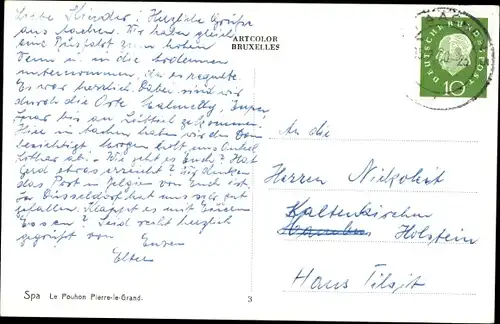 Liebe Kinder! Herzliche Grüße
aus Aachen. Wir haben gleich
eine Busfahrt zum hohen
Venn u. in die
unternommen, da es regnete.
Es war herrlich. Dabei sind wir
durch die Orte Malmedy, Eupen,
bis an Lüttich gekommen.
Hier in Aachen haben wir den Dom
besichtigt, morgen holt uns Onkel
Lothar ab. - Wie geht es Euch? Hat
Gerd etwas erreicht? Wir denken
das Post in Belgien von Euch ist.
In Düsseldorf hat uns sehr gut
gefallen. Klappt es mit Eurem
Essen? Seid recht herzlich
gegrüßt von
Euren
Eltern
ARTCOLOR
BRUXELLES
DEUTSCHE BUNDESPOST
10
An die
Herren Nickoleit
Kaltenkirchen
Holstein
Haus Tilsit
Spa Le Pouhon Pierre-le-Grand.
3